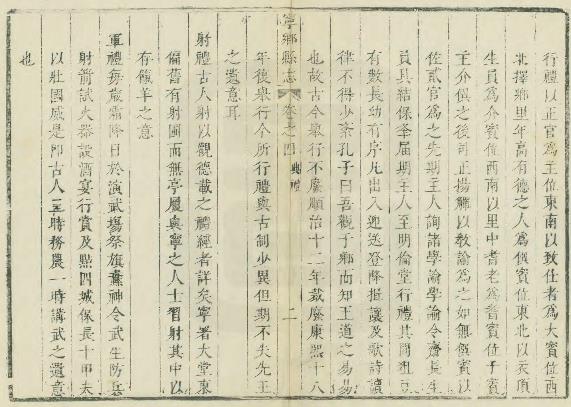 行禮以正官為主位東南以致仕者為大賓位西
北擇鄉里年高有德之人為僎賓位東北以次頂
生員為介賓位西南以里中耆老為耆賓位于賓
主介僎之後司正揚觶以教諭為之如無僎賓以
佐貳官為之先期主人詢諸學諭學諭令齋長生
員具結保舉屆期主人至明倫堂行禮其間俎豆
有數長幼有序凡出入迎送登降揖讓及歌詩讀
律不得少紊孔子曰吾觀于鄉而知王道之易易
也故古今舉行不廢順治十二年裁廢康熙十八
寧鄉縣志 卷之四 典禮 二
年後舉行今所行禮與古制少異但期不失先王
之遺意耳
射禮古人射以觀德載之禮經者詳矣寧署大堂東
偏舊有射圃而無亭屢與寧之人士習射其中以
存餼羊之意
軍禮每歲霜降日於演武場祭旗纛神令武生防兵
射箭試火器設酒宴行賞及點四城保長十甲夫
以壯國威是即古人三時務農一時講武之遺意
也